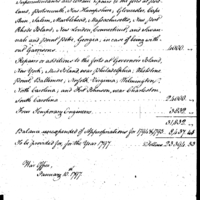 Superintendance and certain repairs to the forts at
Portsmouth, New Hampshire, Gloucester, Cape
Ann, Salem, Marblehead, Massachusetts, New port
Rhode Island, New London, Connecticut, and Savan-
nah and point Petre, Georgia, in case of having with-
out Garrisons 4000
Repairs or additions to the forts at Governors Island,
New York, Mud Island, near Philadelphia, Whetstone
Point Baltimore, Norfolk Virginia, Wilmington,
North Carolina, and Fort Johnson, near Charleston,
South Carolina 24000
Four Temporary Engineers
31,832
Balance unexpended of Appropriations for 1794 & 1795
To be provided for, for the Year 1797 Dollars
War Office,
January 10th 1797